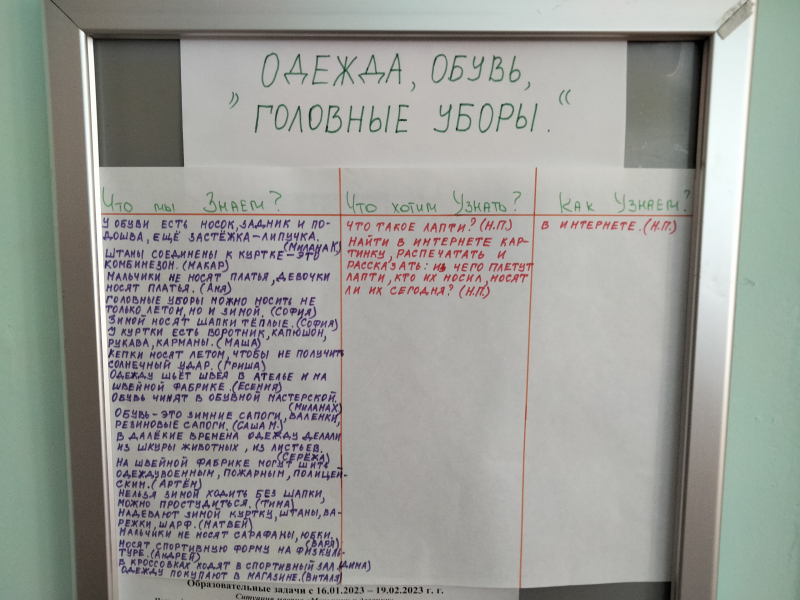 ОДЕЖДА, ОБУВЬ,
„ ГОЛОВНЫЕ УБОРЫ. “
Что мы Знаем?
У ОБУВИ ЕСТЬ НОСОК, ЗАДНИК И ПО-
ДОШВА, ЕЩЁ ЗАСТЁЖКА-ЛИПУЧКА.
(МИЛАНА К)
ШТАНЫ СОЕДИНЕНЫ К КУРТКЕ – ЭТО
КОМБИНЕЗОН. (МАКАР)
МАЛЬЧИКИ НЕ НОСЯТ ПЛАТЬЯ, ДЕВОЧКИ
НОСЯТ ПЛАТЬЯ. (АНЯ)
ГОЛОВНЫЕ УБОРЫ МОЖНО НОСИТЬ НЕ
ТОЛЬКО ЛЕТОМ, НО И ЗИМОЙ. (СОФИЯ)
ЗИМОЙ НОСЯТ ШАПКИ ТЁПЛЫЕ. (СОФИЯ)
У КУРТКИ ЕСТЬ ВОРОТНИК, КАПЮШОН,
РУКАВА, КАРМАНЫ. (МАША)
КЕПКИ НОСЯТ ЛЕТОМ, ЧТОБЫ НЕ ПОЛУЧИТЬ
СОЛНЕЧНЫЙ УДАР. (ГРИША)
ОДЕЖДУ ШЬЁТ ШВЕЯ В АТЕЛЬЕ И НА
ШВЕЙНОЙ ФАБРИКЕ. (ЕСЕНИЯ)
ОБУВЬ ЧИНЯТ В ОБУВНОЙ МАСТЕРСКОЙ.
(МИЛАНА Х)
ОБУВЬ – ЭТО ЗИМНИЕ САПОГИ, ВАЛЕНКИ,
РЕЗИНОВЫЕ САПОГИ. (САША М.)
В ДАЛЁКИЕ ВРЕМЕНА ОДЕЖДУ ДЕЛАЛИ
ИЗ ШКУРЫ ЖИВОТНЫХ, ИЗ ЛИСТЬЕВ.
(СЕРЁЖА)
НА ШВЕЙНОЙ ФАБРИКЕ МОГУТ ШИТЬ
ОДЕЖДУ ВОЕННЫМ, ПОЖАРНЫМ, ПОЛИЦЕЙ-
СКИМ. (АРТЁМ)
НЕЛЬЗЯ ЗИМОЙ ХОДИТЬ БЕЗ ШАПКИ,
МОЖНО ПРОСТУДИТЬСЯ. (ТИМА)
НАДЕВАЮТ ЗИМОЙ КУРТКУ, ШТАНЫ, ВА-
РЕЖКИ, ШАРФ. (МАТВЕЙ)
МАЛЬЧИКИ НЕ НОСЯТ САРАФАНЫ, ЮБКИ.
(ВАРЯ)
НОСЯТ СПОРТИВНУЮ ФОРМУ НА ФИЗКУЛЬ-
ТУРЕ. (АНДРЕЙ)
В КРОССОВКАХ ХОДЯТ В СПОРТИВНЫЙ ЗАЛ. (ДИМА)
ОДЕЖДУ ПОКУПАЮТ В МАГАЗИНЕ. (ВИТАЛЯ)
Что хотим Узнать?
ЧТО ТАКОЕ ЛАПТИ? (Н.П.)
НАЙТИ В ИНТЕРНЕТЕ КАР-
ТИНКУ, РАСПЕЧАТАТЬ И
РАССКАЗАТЬ: ИЗ ЧЕГО ПЛЕТУТ
ЛАПТИ, КТО ИХ НОСИЛ, НОСЯТ
ЛИ ИХ СЕГОДНЯ? (Н.П.)
Как Узнаем?
В ИНТЕРНЕТЕ. (Н.П.)
Образовательные задачи с 16.01.2023 – 19.02.2023 г. г.